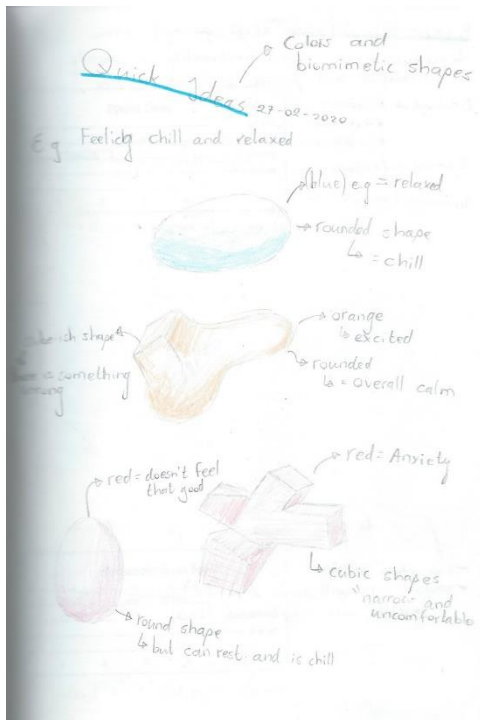 Quick Ideas
Colors and
biomimetic shapes
27-02-2020
Eg Feelidg chill and relaxed
(blue) eg = relaxed
rounded shape
= chill
orange
excited
rounded
= overall calm
ish shape
is something
red = Anxiety
red = doesn't feel
that good
cubic shapes
"narrow and
uncomfortable
round shape
but can rest. and is chill